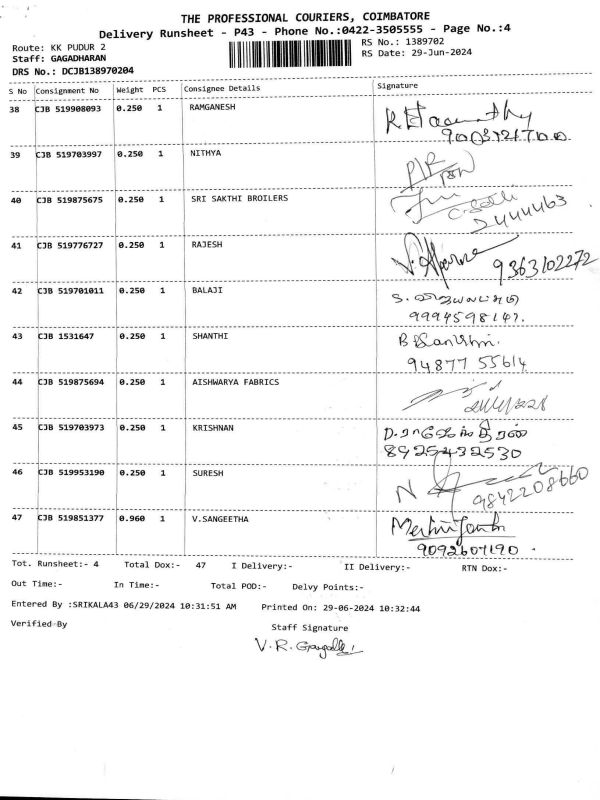 THE PROFESSIONAL COURIERS, COIMBATORE
Delivery Runsheet - P43 - Phone No.:0422-3505555 - Page No.:4
Route: KK PUDUR 2 RS No.: 1389702
Staff: GAGADHARAN RS Date: 29-Jun-2024
DRS No.: DCJB138970204
S No Consignment No Weight PCS Consignee Details Signature
38 CJB 519908093 0.250 1 RAMGANESH
39 CJB 519703997 0.250 1 NITHYA
40 CJB 519875675 0.250 1 SRI SAKTHI BROILERS
2444463
41 CJB 519776727 0.250 1 RAJESH
9363102272
42 CJB 519701011 0.250 1 BALAJI
9994598147.
43 CJB 1531647 0.250 1 SHANTHI
94877 55614
44 CJB 519875694 0.250 1 AISHWARYA FABRICS
45 CJB 519703973 0.250 1 KRISHNAN
8925432530
46 CJB 519953190 0.250 1 SURESH
9842208660
47 CJB 519851377 0.960 1 V.SANGEETHA
9092607190
Tot. Runsheet:- 4 Total Dox:- 47 I Delivery:- II Delivery:- RTN Dox:-
Out Time:- In Time:- Total POD:- Delvy Points:-
Entered By :SRIKALA43 06/29/2024 10:31:51 AM Printed On: 29-06-2024 10:32:44
Verified-By Staff Signature
V.R.